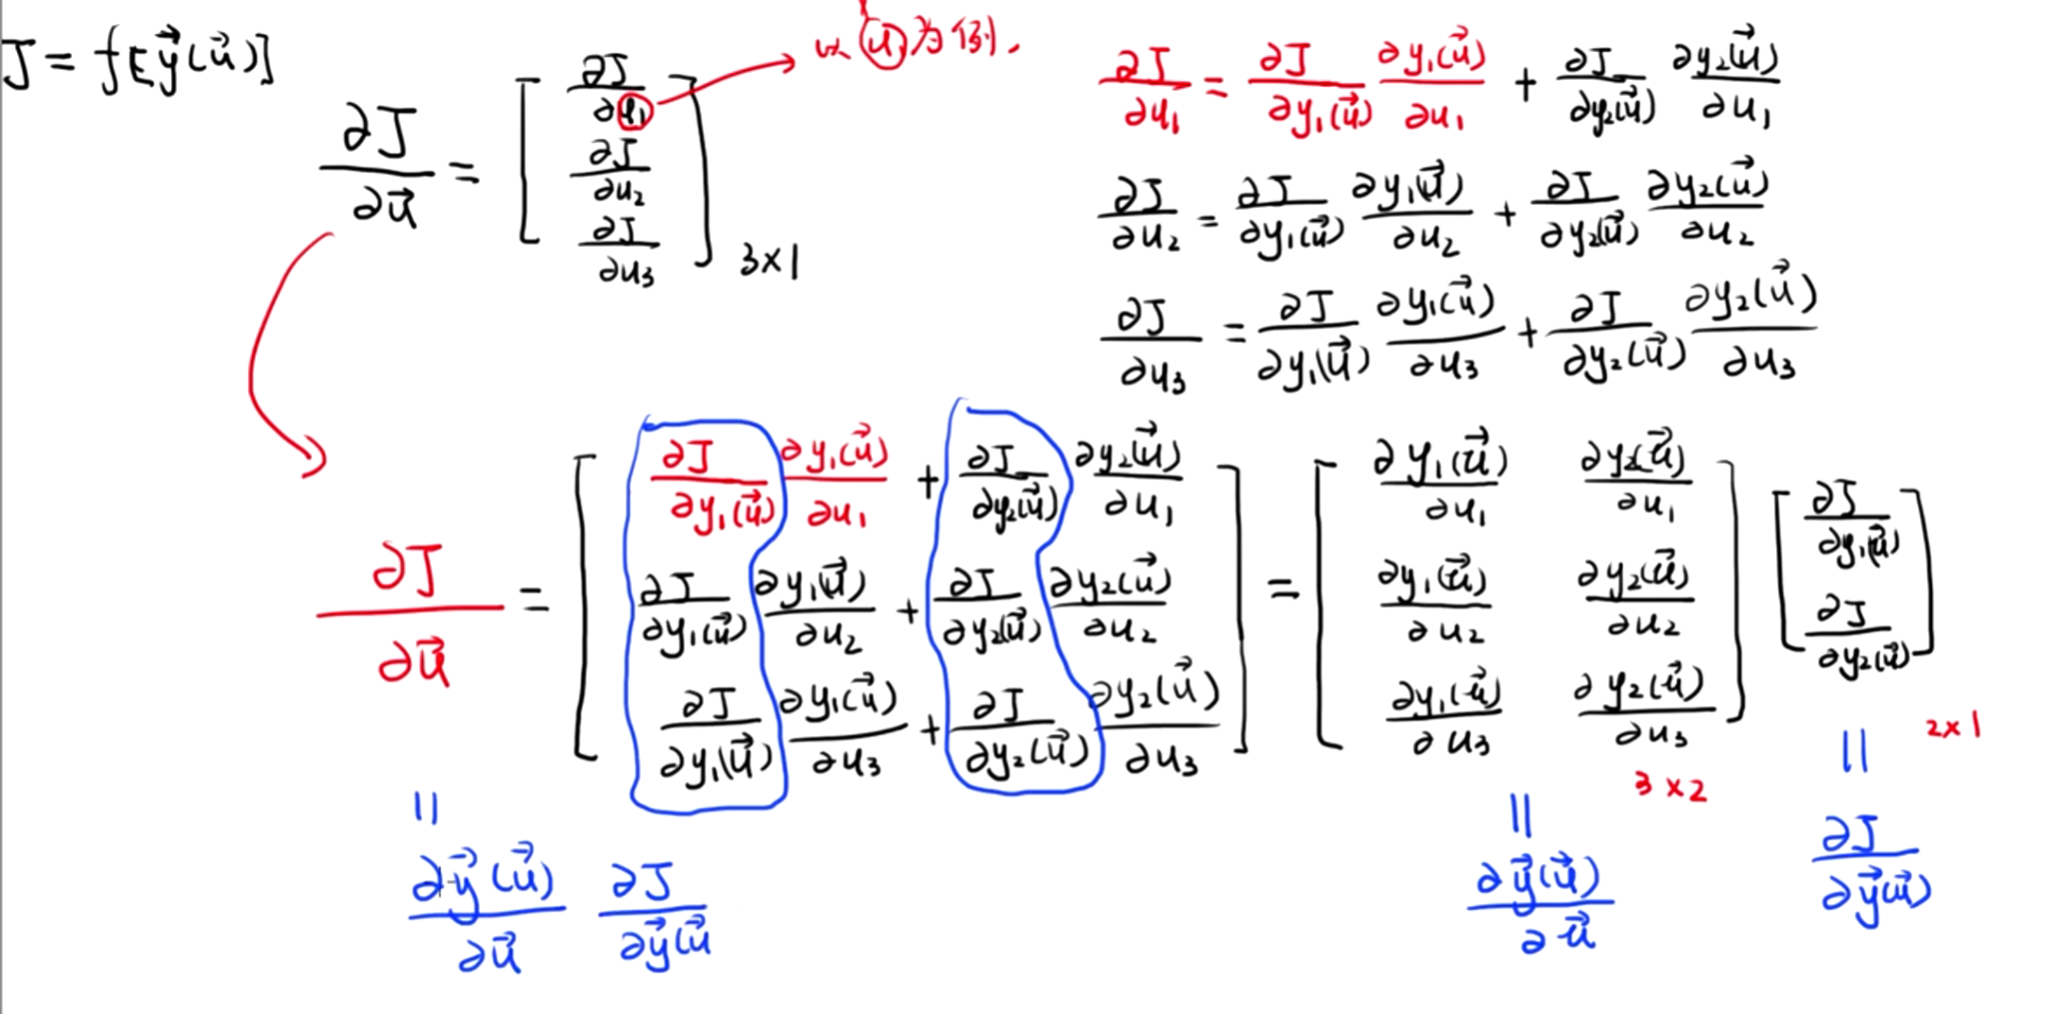 J = f[y⃗(u⃗)]
∂J/∂u⃗ = [ ∂J/∂u₁ ; ∂J/∂u₂ ; ∂J/∂u₃ ] 3×1
以 u₁ 为例.
∂J/∂u₁ = ∂J/∂y₁(u⃗) ∂y₁(u⃗)/∂u₁ + ∂J/∂y₂(u⃗) ∂y₂(u⃗)/∂u₁
∂J/∂u₂ = ∂J/∂y₁(u⃗) ∂y₁(u⃗)/∂u₂ + ∂J/∂y₂(u⃗) ∂y₂(u⃗)/∂u₂
∂J/∂u₃ = ∂J/∂y₁(u⃗) ∂y₁(u⃗)/∂u₃ + ∂J/∂y₂(u⃗) ∂y₂(u⃗)/∂u₃
∂J/∂u⃗ = [ ∂J/∂y₁(u⃗) ∂y₁(u⃗)/∂u₁ + ∂J/∂y₂(u⃗) ∂y₂(u⃗)/∂u₁ ; ∂J/∂y₁(u⃗) ∂y₁(u⃗)/∂u₂ + ∂J/∂y₂(u⃗) ∂y₂(u⃗)/∂u₂ ; ∂J/∂y₁(u⃗) ∂y₁(u⃗)/∂u₃ + ∂J/∂y₂(u⃗) ∂y₂(u⃗)/∂u₃ ] = [ ∂y₁(u⃗)/∂u₁ ∂y₂(u⃗)/∂u₁ ; ∂y₁(u⃗)/∂u₂ ∂y₂(u⃗)/∂u₂ ; ∂y₁(u⃗)/∂u₃ ∂y₂(u⃗)/∂u₃ ] 3×2 [ ∂J/∂y₁(u⃗) ; ∂J/∂y₂(u⃗) ] 2×1
= ∂y⃗(u⃗)/∂u⃗ ∂J/∂y⃗(u⃗
= ∂y⃗(u⃗)/∂u⃗
= ∂J/∂y⃗(u⃗)